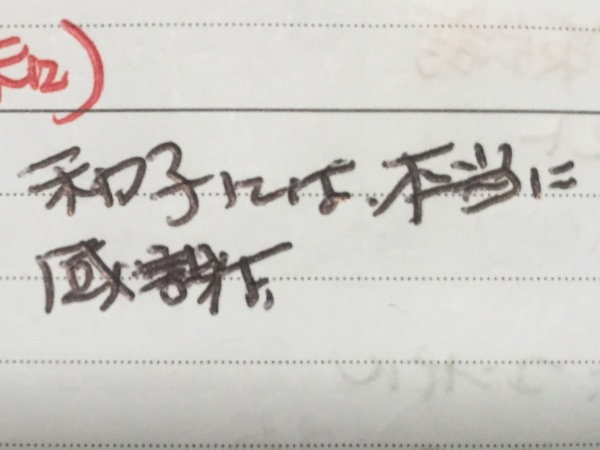 和子には、本当に
感謝。